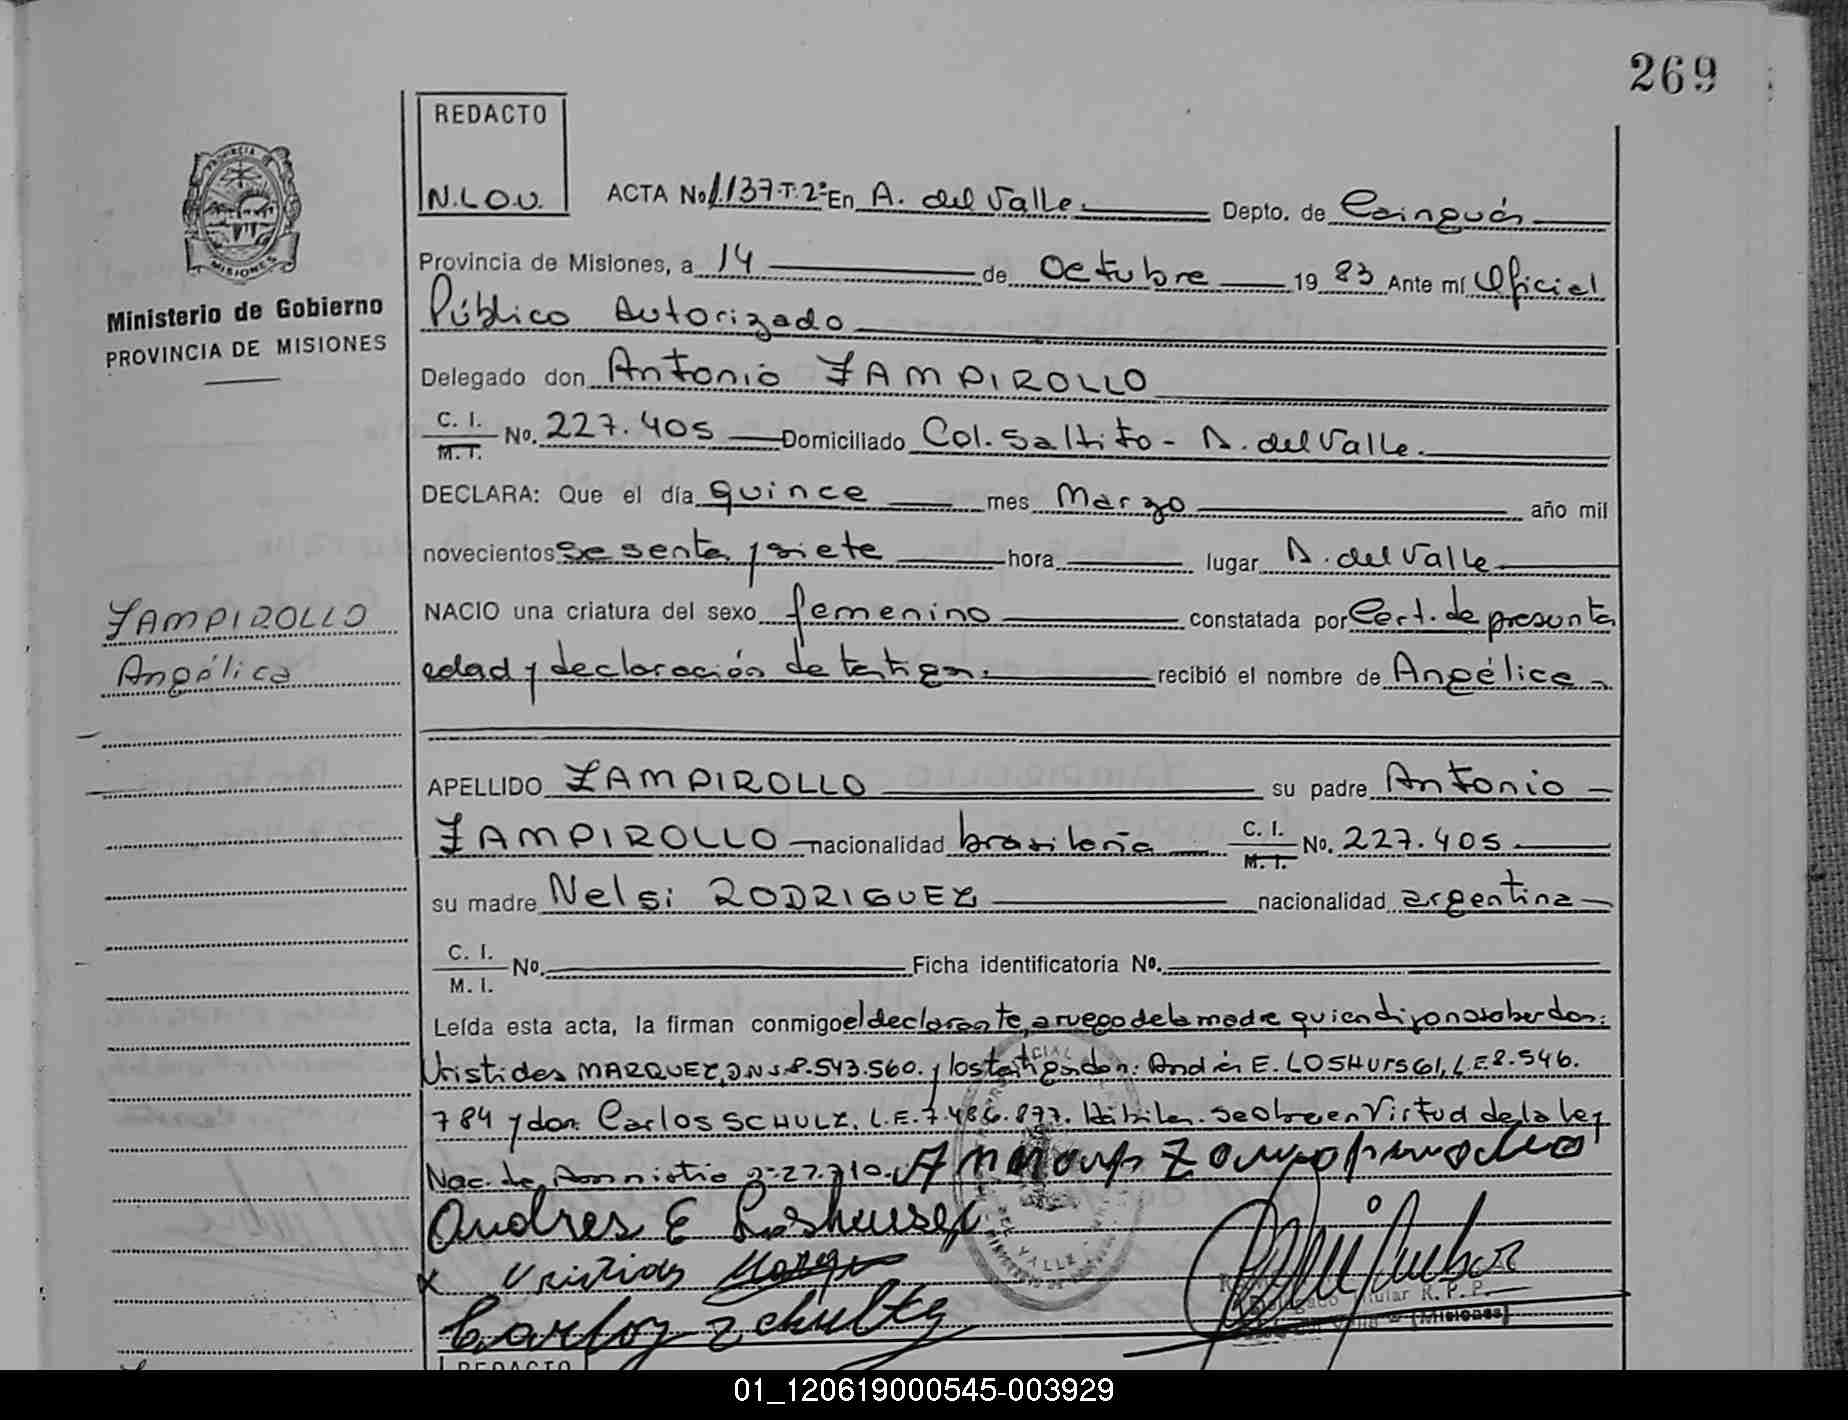 269
REDACTO
N.L.O.V.
ACTA No 1.137-T.2º En A. del Valle Depto. de Cainguás
PROVINCIA DE MISIONES
Provincia de Misiones, a 14 de Octubre 19 83 Ante mí Oficial
Público Autorizado
Ministerio de Gobierno
PROVINCIA DE MISIONES
Delegado don Antonio ZAMPIROLLO
C. I. M. I. No. 227.405 Domiciliado Col. Saltito - A. del Valle.
DECLARA: Que el día quince mes Marzo año mil
novecientos sesenta y siete hora lugar A. del Valle
NACIO una criatura del sexo femenino constatada por Cert. de presunta
ZAMPIROLLO
Angélica
edad y declaración de testigos. recibió el nombre de Angélica
APELLIDO ZAMPIROLLO su padre Antonio
ZAMPIROLLO nacionalidad brasileña C. I. M. I. No. 227.405
su madre Nelsi RODRIGUEZ nacionalidad argentina
C. I. M. I. No. Ficha identificatoria No.
Leída esta acta, la firman conmigo el declarante, a ruego de la madre quien dijo no saber don:
Uristides MARQUEZ, D.N.I. 8.543.560. y los testigos don: Andrés E. L.E. 8.546.
784 y don Carlos SCHULZ, L.E. 7.486.877. Hábiles. Se labra en Virtud de la Ley
Nac. de Amnistia 22.710.
Andres E
Carlos Schultz
R. P. P.
(Misiones)
REDACTO
01_120619000545-003929